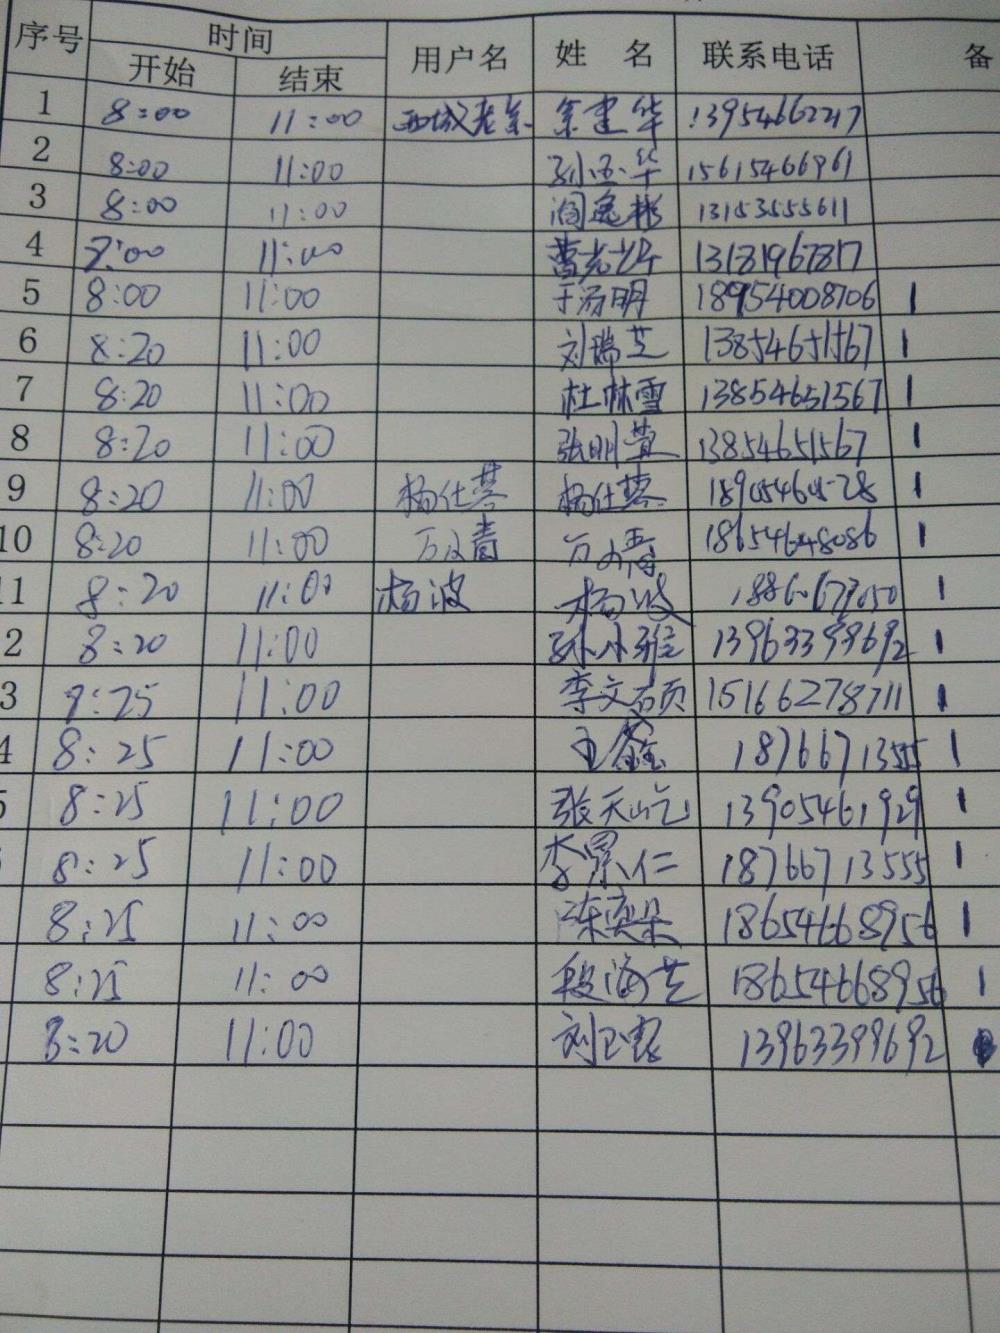 序号 时间 用户名 姓 名 联系电话 备
开始 结束
1 8:00 11:00 西城老余 余建华 13954662217
2 8:00 11:00 华 15615466961
3 8:00 11:00 阎逸彬 13153555611
4 7:00 11:00 曹光 13181967817
5 8:00 11:00 于汤明 18954008706 1
6 8:20 11:00 刘瑞芝 13854651567 1
7 8:20 11:00 杜林雪 13854651567 1
8 8:20 11:00 张明萱 13854651567 1
9 8:20 11:00 杨仕琴 杨仕琴 1
10 8:20 11:00 18654648086 1
11 8:20 11:00 杨波 杨波 1
2 8:20 11:00 孙小雅 13963399692 1
3 8:25 11:00 李文硕 15166278711 1
4 8:25 11:00 王鑫 18766713555 1
5 8:25 11:00 张天屹 13905461929 1
8:25 11:00 李景仁 18766713555 1
8:25 11:00 陈奕朵 18654668956 1
8:25 11:00 段海芝 18654668956 1
8:20 11:00 刘卫 13963399692